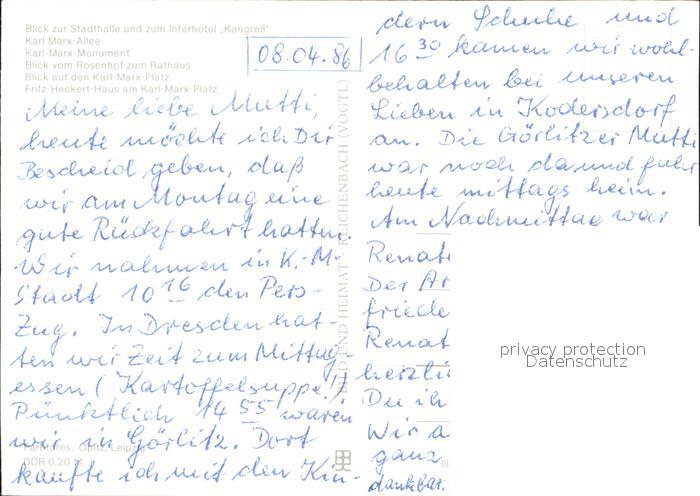 Blick zur Stadthalle und zum Interhotel „Kongreß"
Karl Marx-Allee
Karl-Marx-Monument
Blick vom Rosenhof zum Rathaus
Blick auf den Karl-Marx-Platz
Fritz-Heckert-Haus am Karl-Marx-Platz
08.04.86
Meine liebe Mutti,
heute möchte ich Dir
Bescheid geben, daß
wir am Montag eine
gute Rückfahrt hatten.
Wir nahmen in K.-M.-
Stadt 10 16 den Pers-
Zug. In Dresden hat-
ten wir Zeit zum Mittag-
essen (Kartoffelsuppe!)
Pünktlich 14 55 waren
wir in Görlitz. Dort
kaufte ich mit den Kin-
Farbfotos: Opitz, Leipzig
DDR 0,20 M
BILD UND HEIMAT REICHENBACH (VOGTL)
dern Schuhe und
16 30 kamen wir wohl-
behalten bei unseren
Lieben in Kodersdorf
an. Die Görlitzer Mutti
war noch da und fuhr
heute mittags heim.
Am Nachmittag war
Renat
Der Ar
friede
Renat
herzli
Du ih
Wir a
ganz
dankbar.
privacy protection
Datenschutz